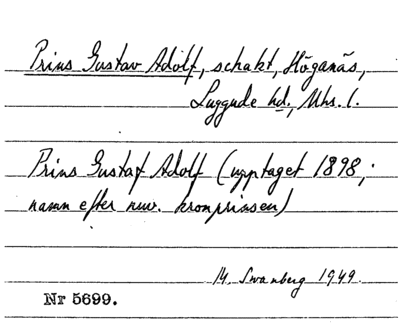 Prins Gustav Adolf, schakt, Höganäs,
Luggude hd., Mhs. l.
Prins Gustaf Adolf (upptaget 1898;
namn efter nuv. kronprinsen)
M. Swanberg 1949.
Nr 5699.